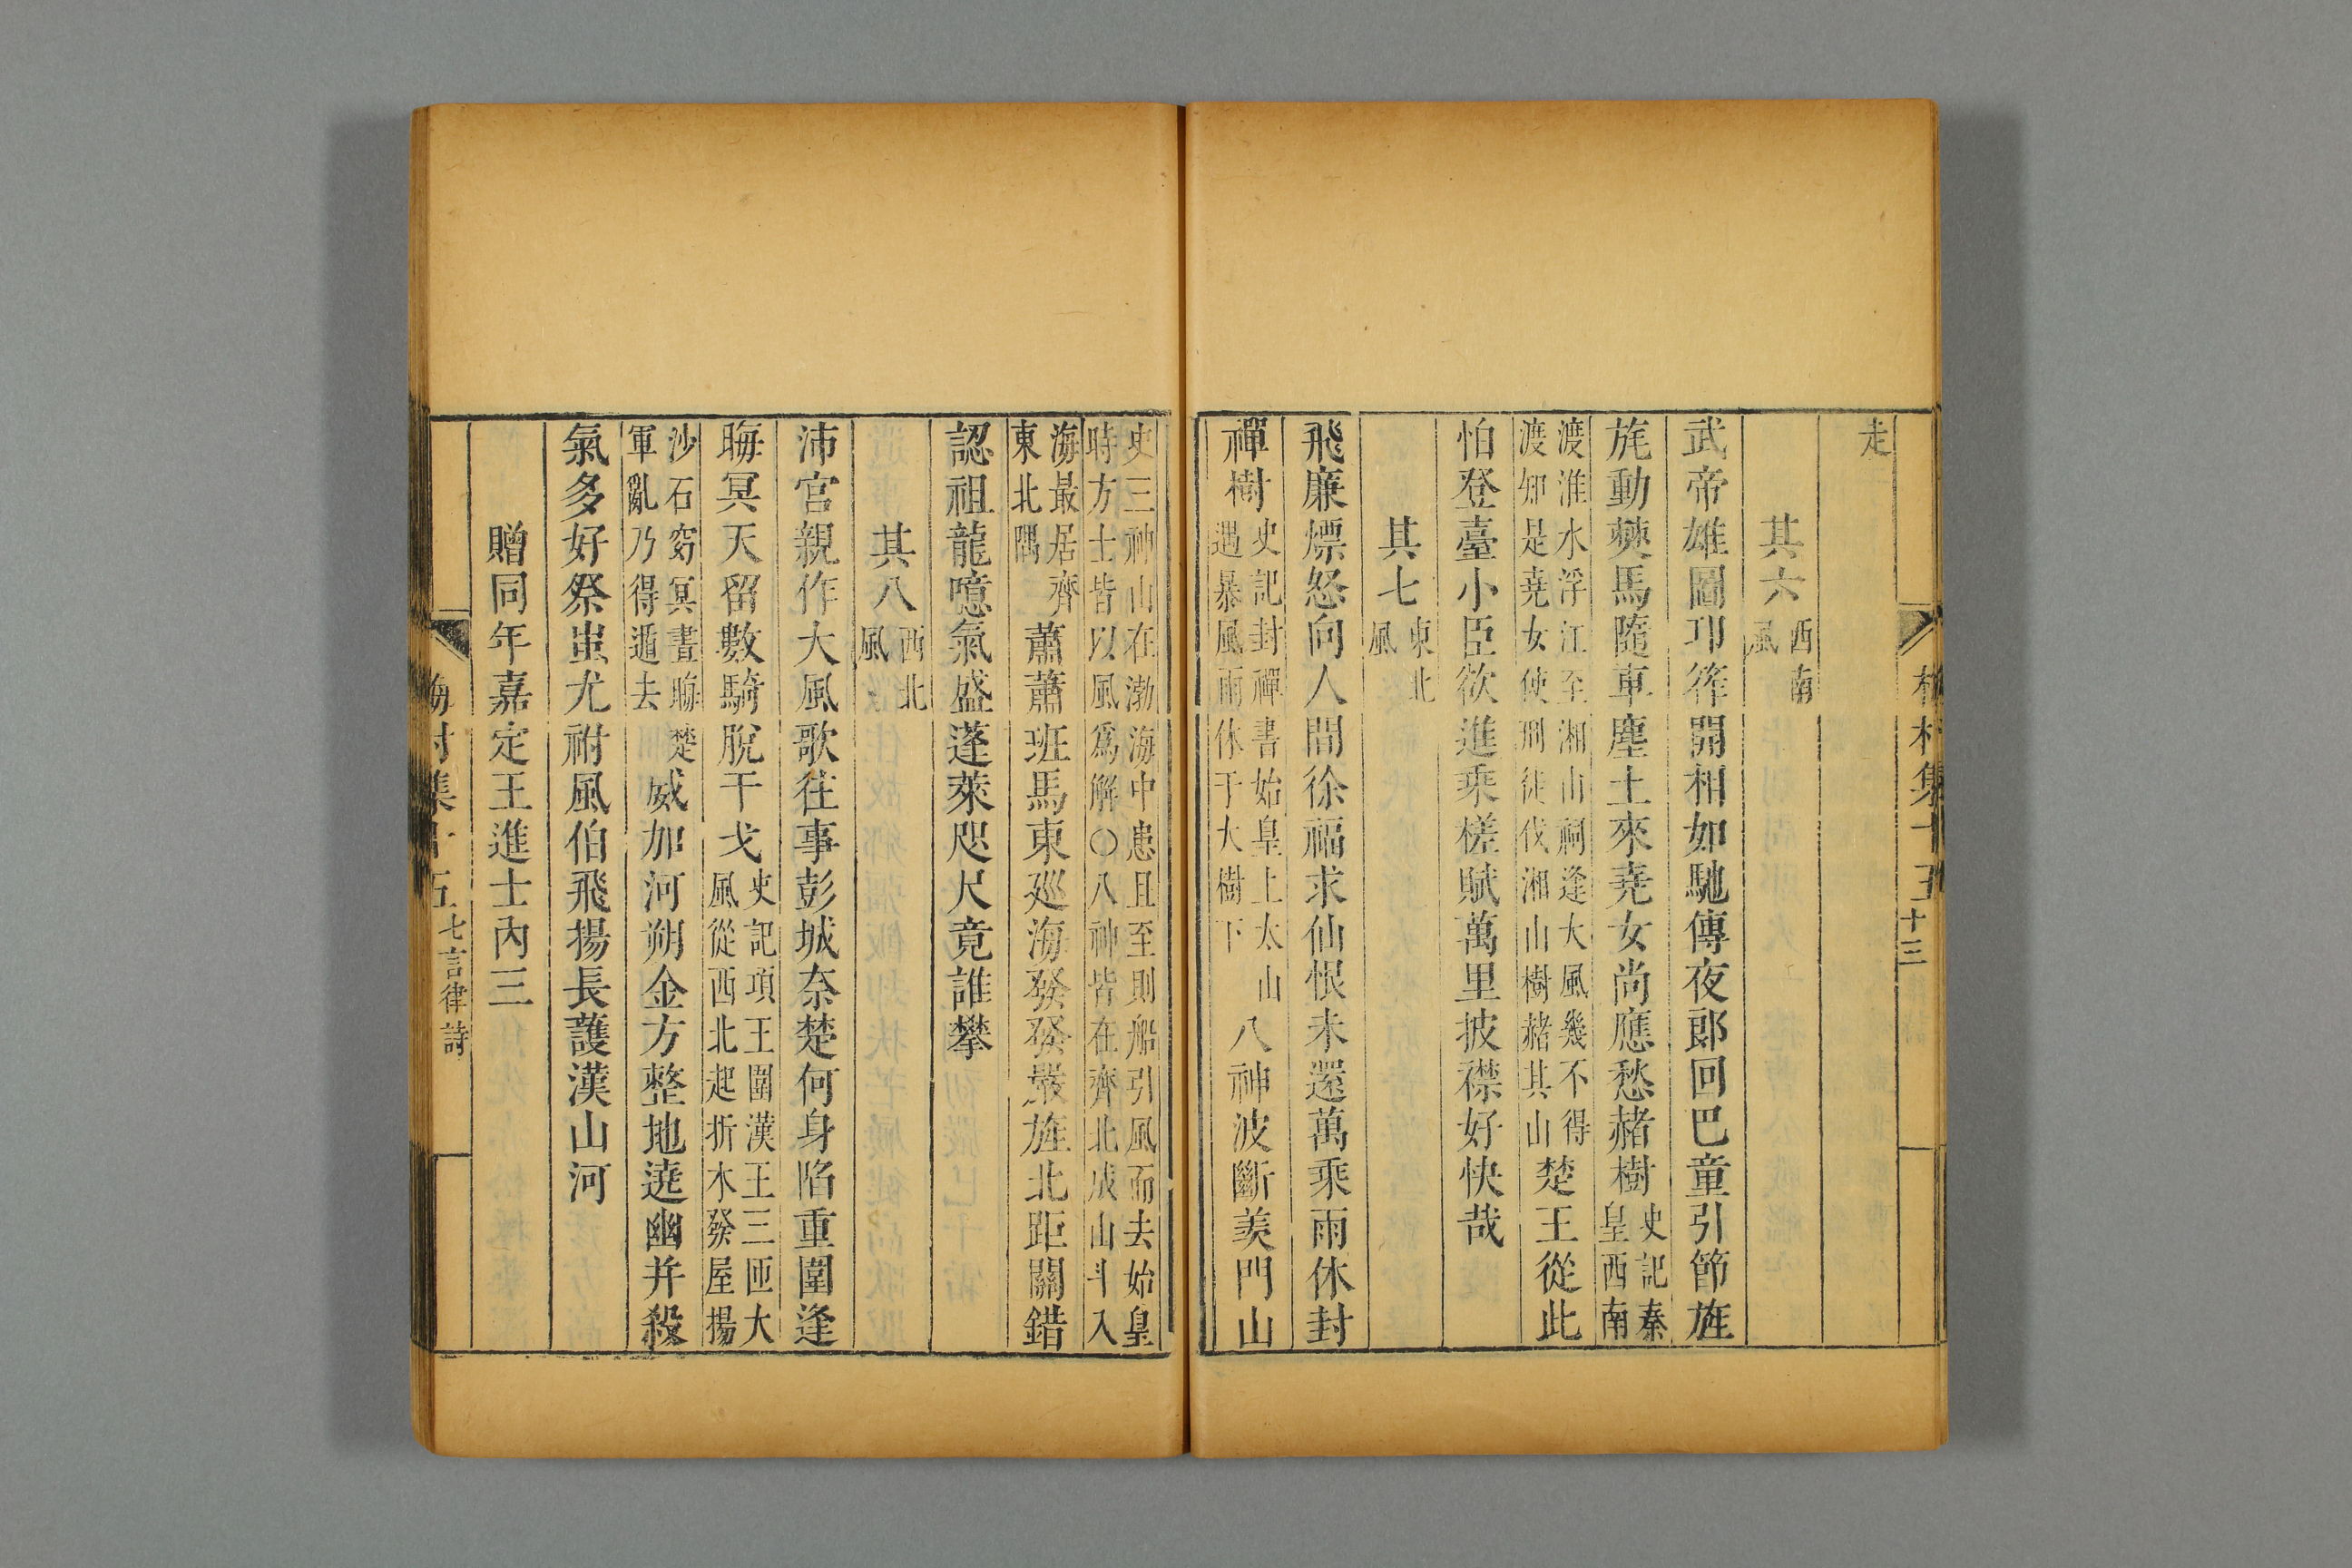 走
其六西南風
武帝雄圖邛筰開相如馳傳夜郎回巴童引節旄
旄動僰馬隨車塵土來堯女尚應愁赭樹史記秦皇西南
渡淮水浮江至湘山祠逢大風幾不得渡知是堯女使刑徒伐湘山樹赭其山楚王從此
怕登臺小臣欲進乘槎賦萬里披襟好快哉
其七東北風
飛廉熛怒向人間徐福求仙恨未還萬乘雨休封
禪樹史記封禪書始皇上太山遇暴風雨休于大樹下八神波斷羨門山
史三神山在渤海中患且至則船引風而去始皇時方士皆以風為解○八神皆在齊北成山斗入
海最居齊東北隅蕭蕭班馬東廵海發發嚴旌北距關錯
認祖龍噫氣盛蓬萊咫尺竟誰攀
其八西北風
沛宮親作大風歌往事彭城奈楚何身陷重圍逢
晦冥天留數騎脫干戈史記項王圍漢王三匝大風從西北起折木發屋揚
沙石窈冥晝晦楚軍亂乃得遁去威加河朔金方整地遶幽并殺
氣多好祭蚩尤祔風伯飛揚長護漢山河
贈同年嘉定王進士內三
梅村集卷十五七言律詩
梅村集十五十三